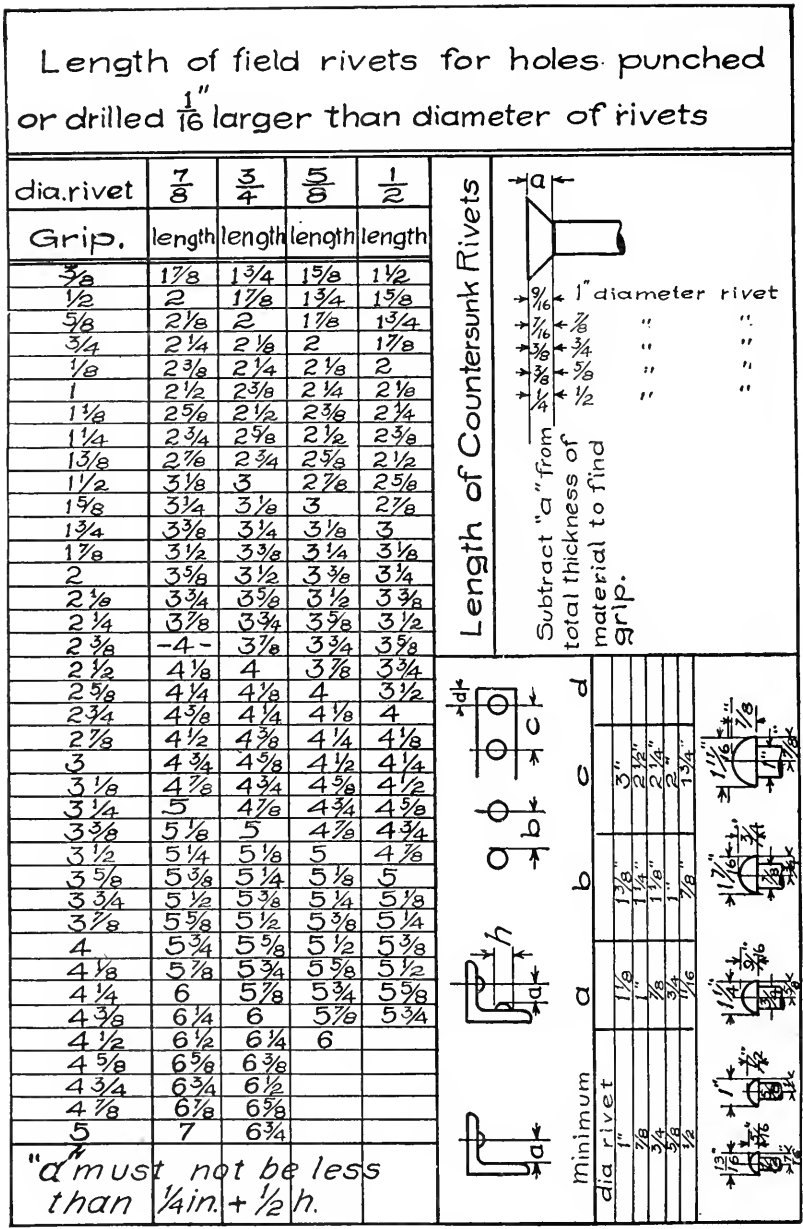 Length of field rivets for holes punched
or drilled 1/16" larger than diameter of rivets
dia.rivet 7/8 3/4 5/8 1/2
Grip. length length length length
3/8 1 7/8 1 3/4 1 5/8 1 1/2
1/2 2 1 7/8 1 3/4 1 5/8
5/8 2 1/8 2 1 7/8 1 3/4
3/4 2 1/4 2 1/8 2 1 7/8
1/8 2 3/8 2 1/4 2 1/8 2
1 2 1/2 2 3/8 2 1/4 2 1/8
1 1/8 2 5/8 2 1/2 2 3/8 2 1/4
1 1/4 2 3/4 2 5/8 2 1/2 2 3/8
1 3/8 2 7/8 2 3/4 2 5/8 2 1/2
1 1/2 3 1/8 3 2 7/8 2 5/8
1 5/8 3 1/4 3 1/8 3 2 7/8
1 3/4 3 3/8 3 1/4 3 1/8 3
1 7/8 3 1/2 3 3/8 3 1/4 3 1/8
2 3 5/8 3 1/2 3 3/8 3 1/4
2 1/8 3 3/4 3 5/8 3 1/2 3 3/8
2 1/4 3 7/8 3 3/4 3 5/8 3 1/2
2 3/8 -4- 3 7/8 3 3/4 3 5/8
2 1/2 4 1/8 4 3 7/8 3 3/4
2 5/8 4 1/4 4 1/8 4 3 1/2
2 3/4 4 3/8 4 1/4 4 1/8 4
2 7/8 4 1/2 4 3/8 4 1/4 4 1/8
3 4 3/4 4 5/8 4 1/2 4 1/4
3 1/8 4 7/8 4 3/4 4 5/8 4 1/2
3 1/4 5 4 7/8 4 3/4 4 5/8
3 3/8 5 1/8 5 4 7/8 4 3/4
3 1/2 5 1/4 5 1/8 5 4 7/8
3 5/8 5 3/8 5 1/4 5 1/8 5
3 3/4 5 1/2 5 3/8 5 1/4 5 1/8
3 7/8 5 5/8 5 1/2 5 3/8 5 1/4
4 5 3/4 5 5/8 5 1/2 5 3/8
4 1/8 5 7/8 5 3/4 5 5/8 5 1/2
4 1/4 6 5 7/8 5 3/4 5 5/8
4 3/8 6 1/4 6 5 7/8 5 3/4
4 1/2 6 1/2 6 1/4 6
4 5/8 6 5/8 6 3/8
4 3/4 6 3/4 6 1/2
4 7/8 6 7/8 6 5/8
5 7 6 3/4
"a" must not be less
than 1/4 in. + 1/2 h.
Length of Countersunk Rivets
a
9/16 1" diameter rivet
7/16 7/8 " "
3/8 3/4 " "
3/8 5/8 " "
1/4 1/2 " "
Subtract "a" from
total thickness of
material to find
grip.
a
a h
b
c d
minimum a b c d
dia rivet
1" 1 1/8 1 3/8" 3"
7/8 1" 1 1/4" 2 1/2"
3/4 7/8 1 1/8" 2 1/4"
5/8 3/4 1" 2"
1/2 11/16 7/8" 1 3/4"
13/16"
1" 1/2"
1 1/4" 9/16"
1 7/16" 3/4"
1 11/16" 7/8" 1"